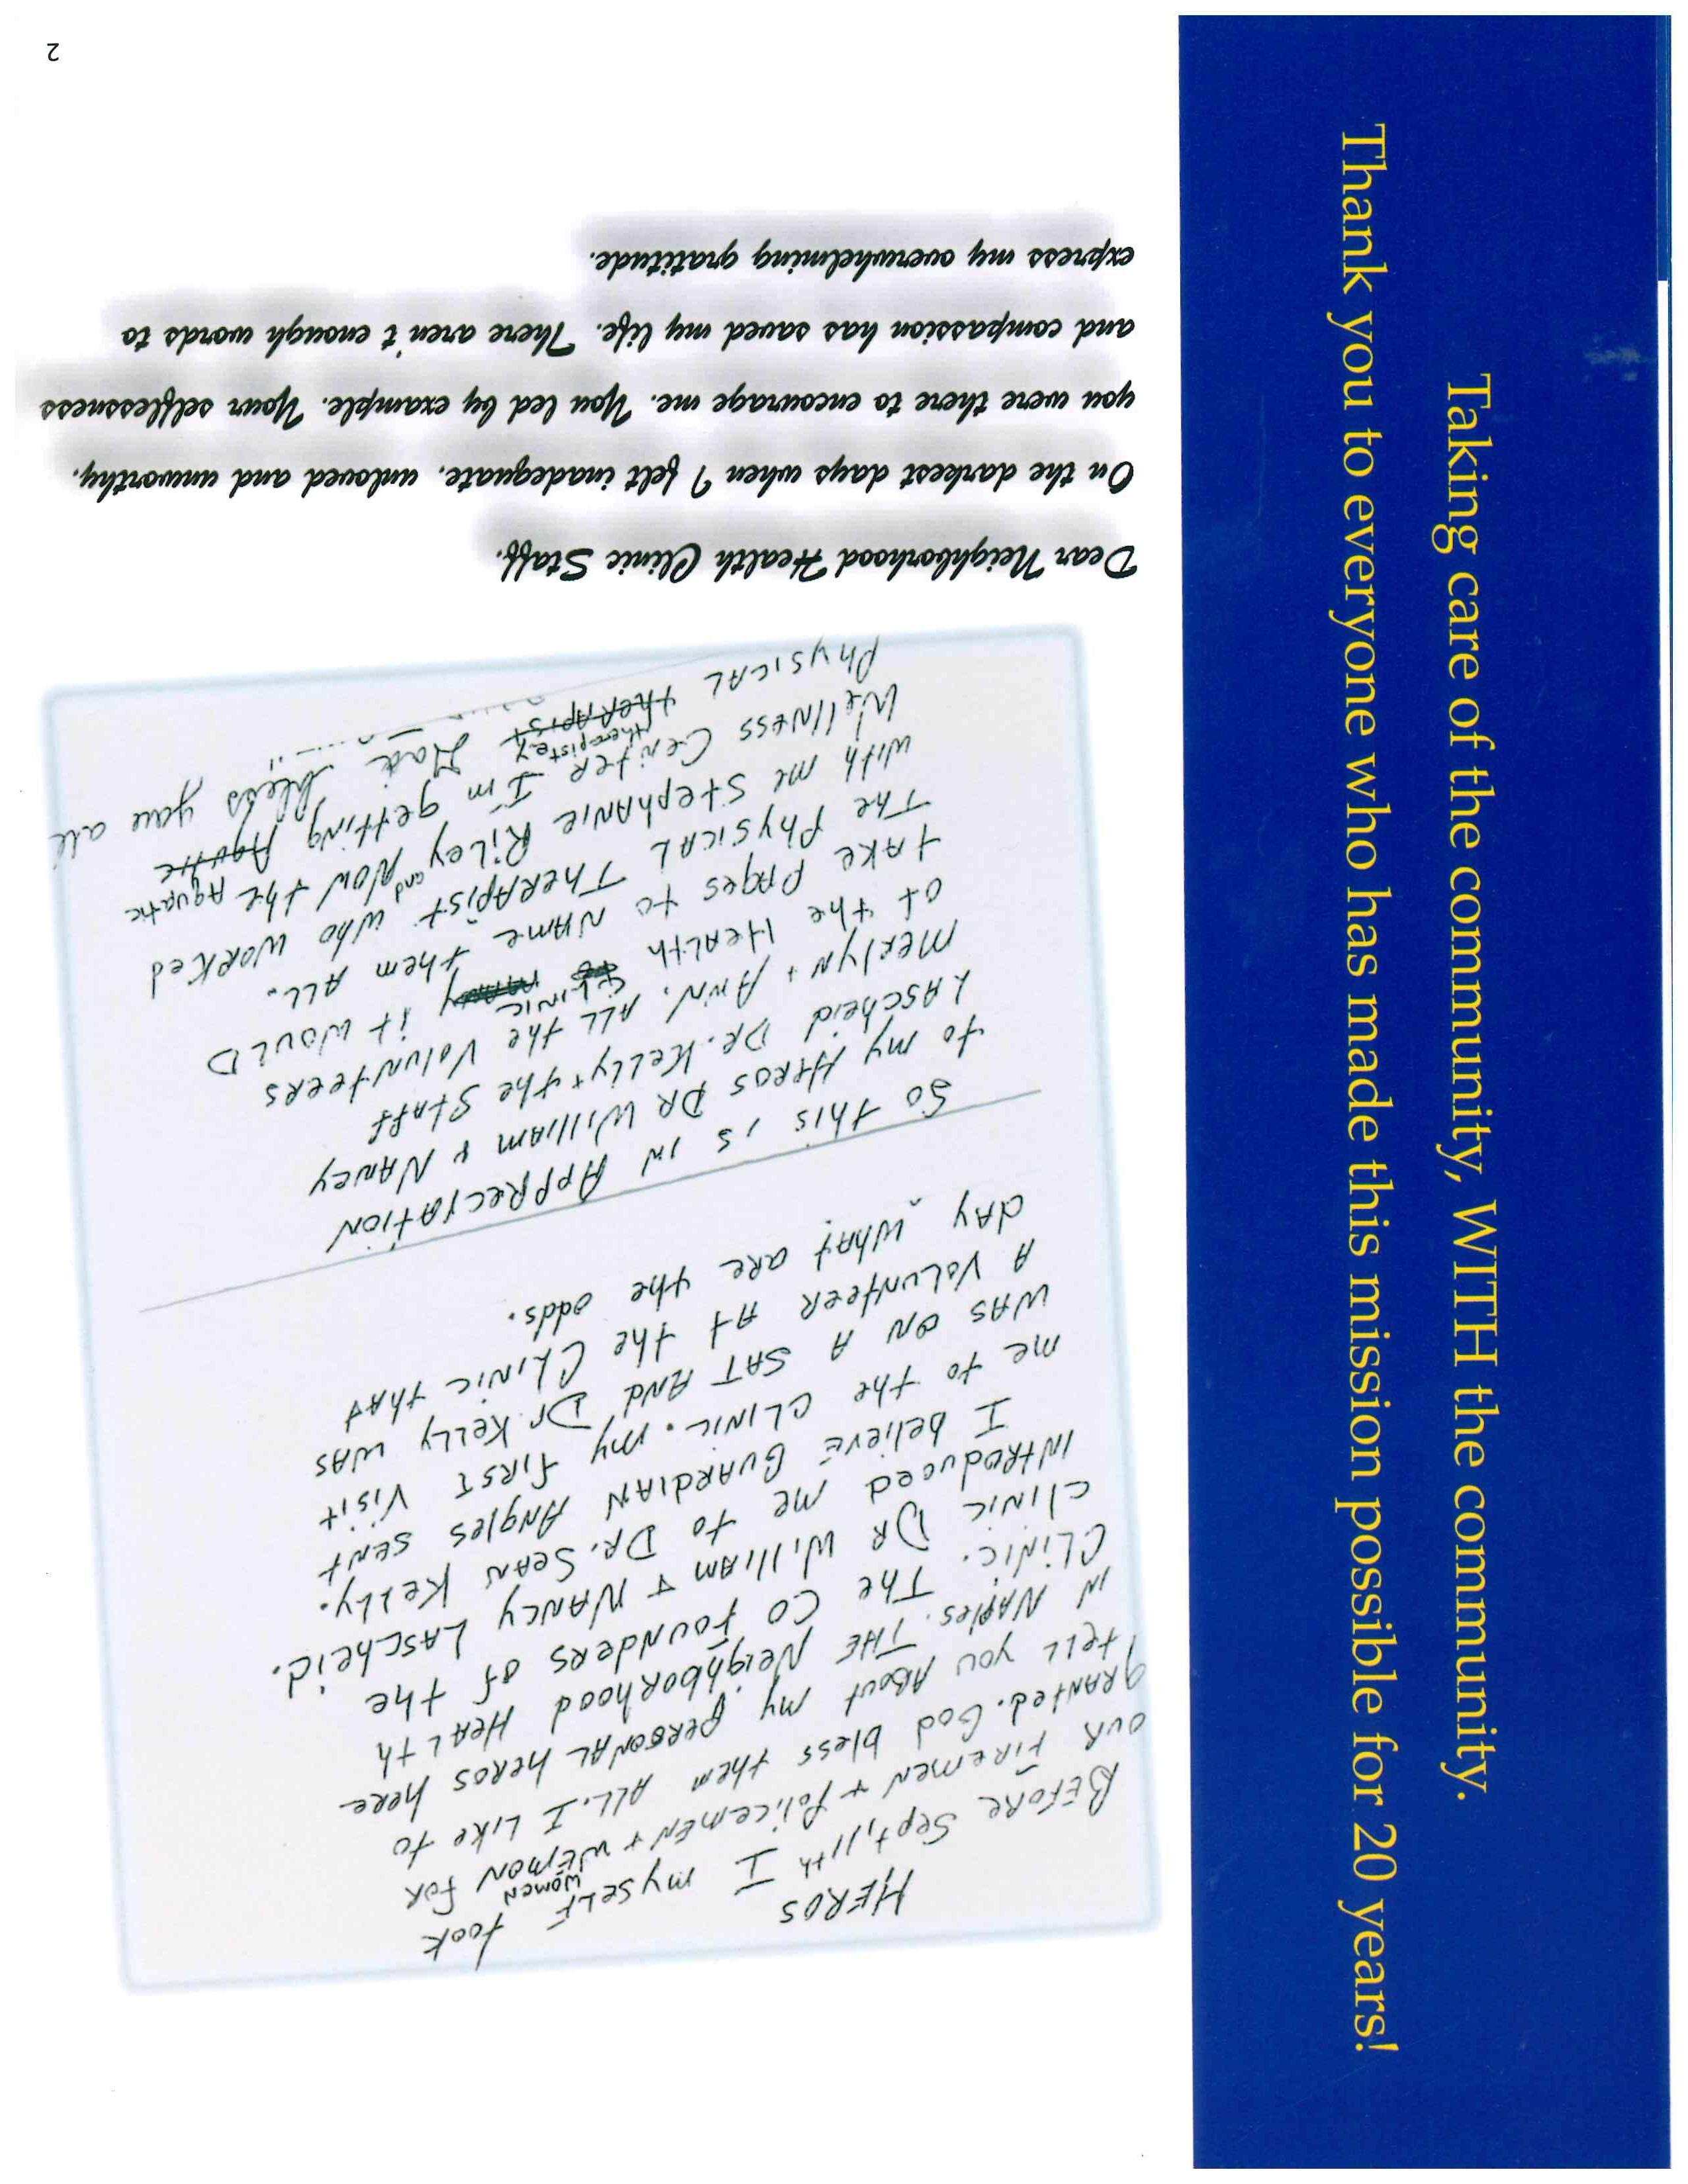 HEROS
BEFORE Sept, 11th I mySELF took
OUR FIREMEN + PoliceMEN + WEMON WOMEN FOR
GRANTED. GOD bless them ALL. I LIKE to
tELL you About my PERSONAL HEROS here
IN NAPles. THE NeighboRhood HEALth
CLINIC. The CO FOUNDERS of the
CLINIC DR WilliAm + NANCY LAScheid.
INTRoduced me to DR. SEAN KELLY.
I believE GuARDIAN ANgles SENT
me to the CLINIC. my FIRST VISIT
WAS ON A SAT AND Dr. KELLY WAS
A VOLUNteeR At the CLINIC that
dAy what are the odds.
So this is in APPRECIATION
to my HEROS DR William & NANCY
LAScheid DR. KELLY + the STAFF
MERLYN + ANN. ALL the VoluNteeRS
at the HEALth CLINIC it WOULD
tAKE PAGES to NAME them ALL.
The PhysICAL THERAPIST who WORKED
with me StephANIE Riley and NOW the
WellNESS CeNteR I'm getting Aquatic Aquatic
PhysICAL theRAPist therapistey God bless you all
Dear Neighborhood Health Clinic Staff,
On the darkest days when I felt inadequate, unloved and unworthy,
you were there to encourage me. You led by example. Your selflessness
and compassion has saved my life. There aren't enough words to
express my overwhelming gratitude.
2
Taking care of the community, WITH the community.
Thank you to everyone who has made this mission possible for 20 years!